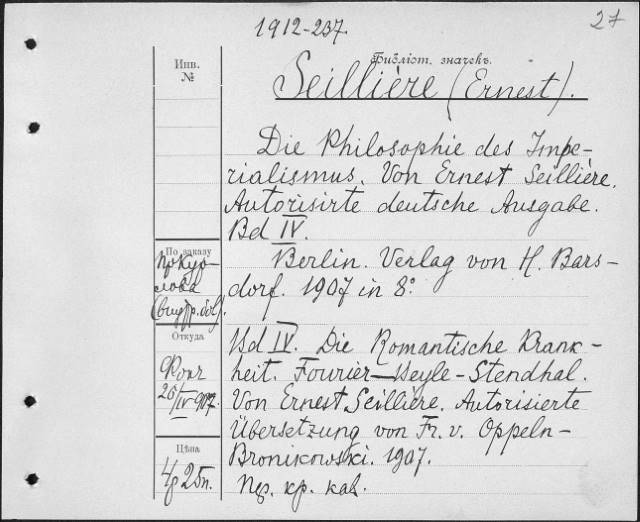 1912-237.
27
Инв.
№
Библіот. значекъ.
Seillière (Ernest).
Die Philosophie des Impe-
rialismus. Von Ernest Seillière.
Autorisirte deutsche Ausgabe.
Bd IV.
По заказу
Berlin. Verlag von H. Bars-
dorf. 1907 in 8°
Откуда
Bd IV. Die Romantische Krank-
heit. Fourier—Beyle-Stendhal.
Von Ernest Seillière. Autorisierte
Übersetzung von Fr. v. Oppeln-
Bronikowski. 1907.
20/IV 907.
Цѣна
4р 25п.
Пер. кр. кал.